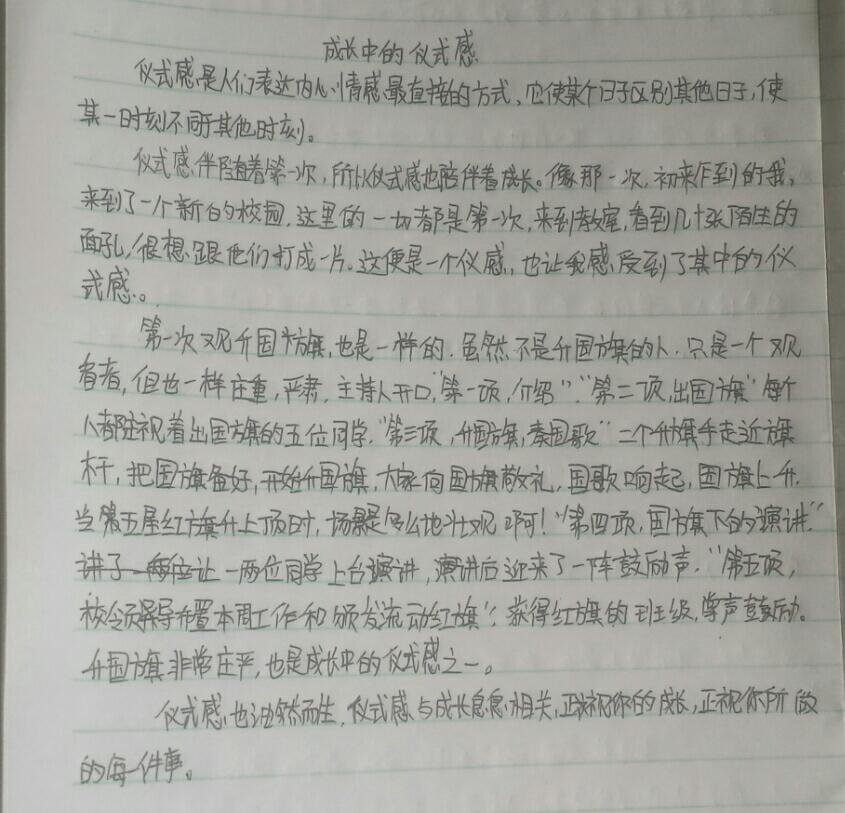 成长中的仪式感
仪式感是人们表达内心情感最直接的方式、它使某个日子区别其他日子,使
某一时刻不同于其他时刻。
仪式感伴随着第一次,所以仪式感也陪伴着成长。像那一次,初来乍到的我,
来到了一个新的校园,这里的一切都是第一次,来到教室,看到几十张陌生的
面孔,很想跟他们打成一片。这便是一个仪感,也让我感受到了其中的仪
式感。
第一次观升国旗,也是一样的.虽然不是升国旗的人.只是一个观
看者,但也一样庄重,严肃,主持人开口,“第一项,介绍”.“第二项,出国旗”每个
人都注视着出国旗的五位同学.“第三项,升国旗,奏国歌”二个升旗手走近旗
杆,把国旗备好,开始升国旗,大家向国旗敬礼,国歌响起,国旗上升.
当第五星红旗升上顶时,场景是多么地壮观啊!“第四项,国旗下的演讲.”
让一两位同学上台演讲,演讲后迎来了一阵鼓励声.“第五项,
校领导布置本周工作和颁发流动红旗”;获得红旗的班级,掌声鼓励.
升国旗非常庄严,也是成长中的仪式感之一。
仪式感也油然而生,仪式感与成长息息相关,正视你的成长,正视你所做
的每一件事。